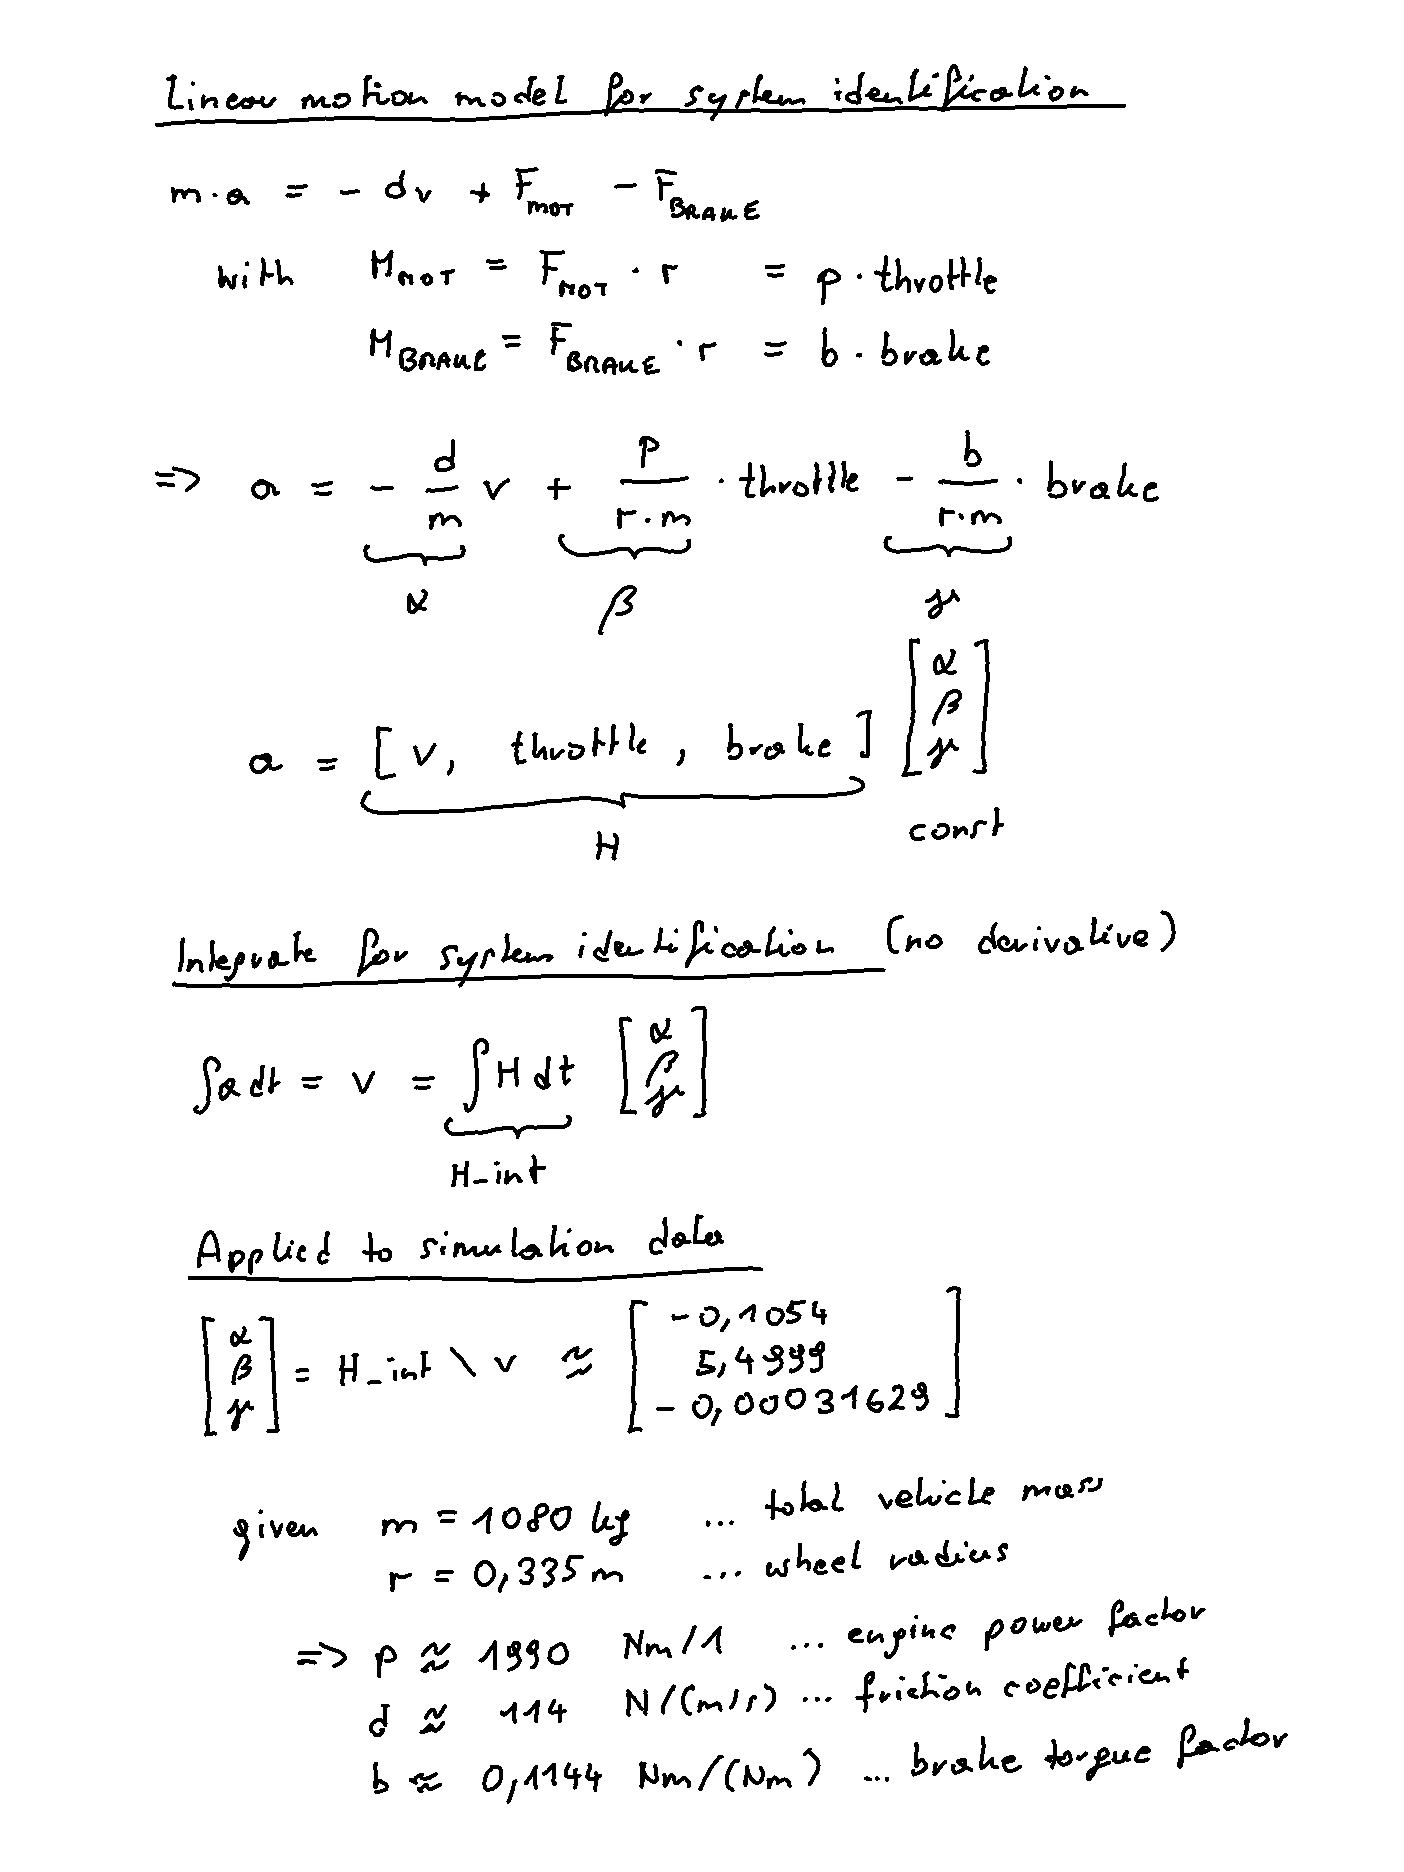 Linear motion model for system identification
m·a = - dv + F_MOT - F_BRAKE
with M_MOT = F_MOT · r = p · throttle
M_BRAKE = F_BRAKE · r = b · brake
=> a = - d/m v + p/(r·m) · throttle - b/(r·m) · brake
α β γ
a = [ v, throttle, brake ] [ α β γ ]
H const
Integrate for system identification (no derivative)
∫a dt = v = ∫H dt [ α β γ ]
H_int
Applied to simulation data
[ α β γ ] = H_int \ v ≈ [ -0,1054 5,4999 -0,00031629 ]
given m = 1080 kg ... total vehicle mass
r = 0,335 m ... wheel radius
=> p ≈ 1990 Nm/1 ... engine power factor
d ≈ 114 N/(m/s) ... friction coefficient
b ≈ 0,1144 Nm/(Nm) ... brake torque factor